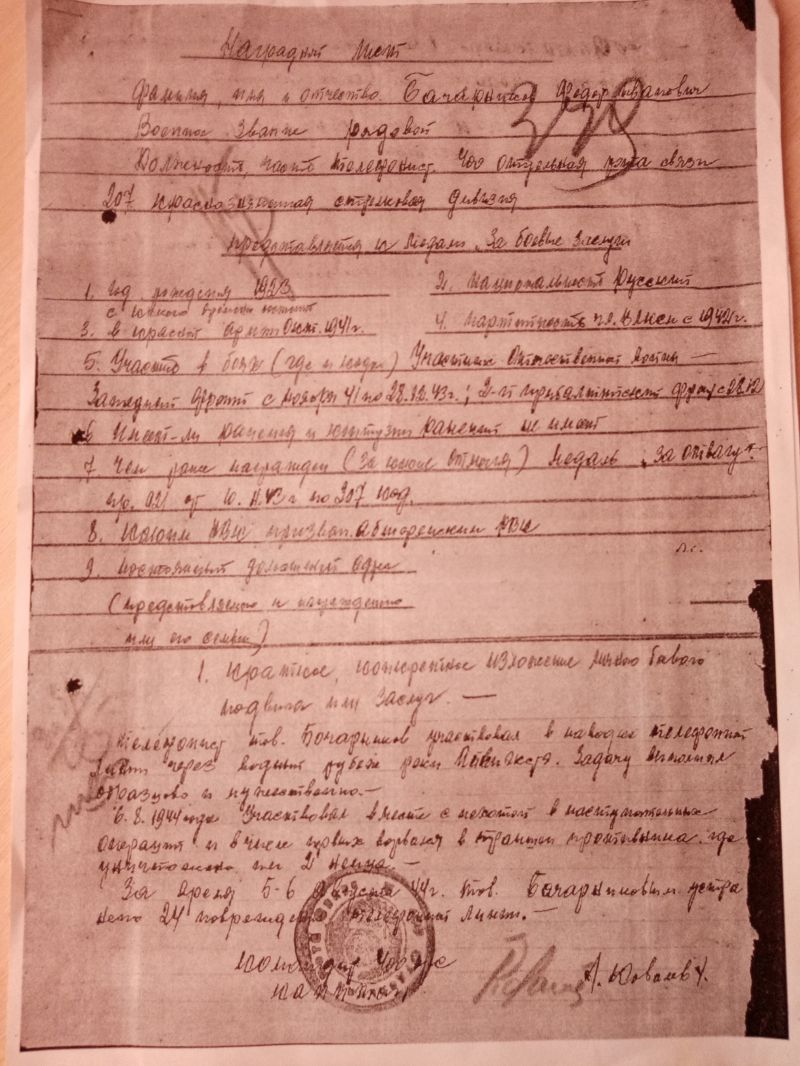 Наградной лист
Фамилия, имя и отчество. Бачарников Федор Иванович
Военное звание рядовой
Должность, часть телефонист. 400 отдельная рота связи
207 краснознаменная стрелковая дивизия
представляется к медали „За боевые заслуги
1. год рождения 1923
2. национальность Русский
с какого времени состоит
3. в красной армии Окт. 1941г.
4. партийность чл. ВЛКСМ с 1942г.
5. Участие в боях (где и когда) Участник Отечественной войны —
Западный фронт с ноября 41 по 28.12.43г.; 2-й прибалтийский фронт с 28.12
6 Имеет-ли ранения и контузии ранений не имеет
7. Чем ранее награжден (за какие отличия) Медаль „За отвагу"
пр. 021 от 10. 43г по 207 ксд.
8. Каким РВК призван.  РВК
9. постоянный домашний адрес
(представляемого к награждению
или его семьи)
1. краткое, конкретное изложение личного боевого
подвига или заслуг. —
Телефонист тов. Бочарников участвовал в наводке телефонной
линии через водный рубеж реки  Задачу выполнил
образцово и мужественно. —
6.8.1944 года Участвовал вместе с пехотой в наступательных
операциях и в числе первых ворвался в траншеи противника. где
уничтожил 2 немца. —
За время 5-6 августа 44г. тов. Бачарниковым устра
нено 24 повреждения телефонной линии. —
Командир 400 орс
капитан Ковалев